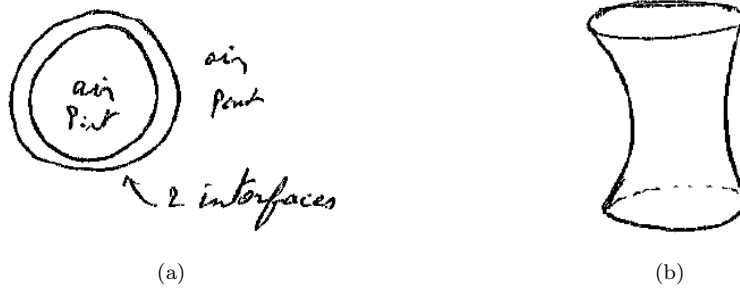 air
Pint
air
Pout
2 interfaces
(a)
(b)